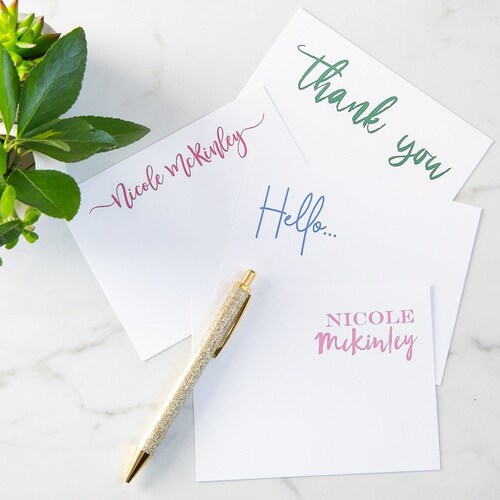 thank you
Nicole McKinley
Hello...
NICOLE
McKinley